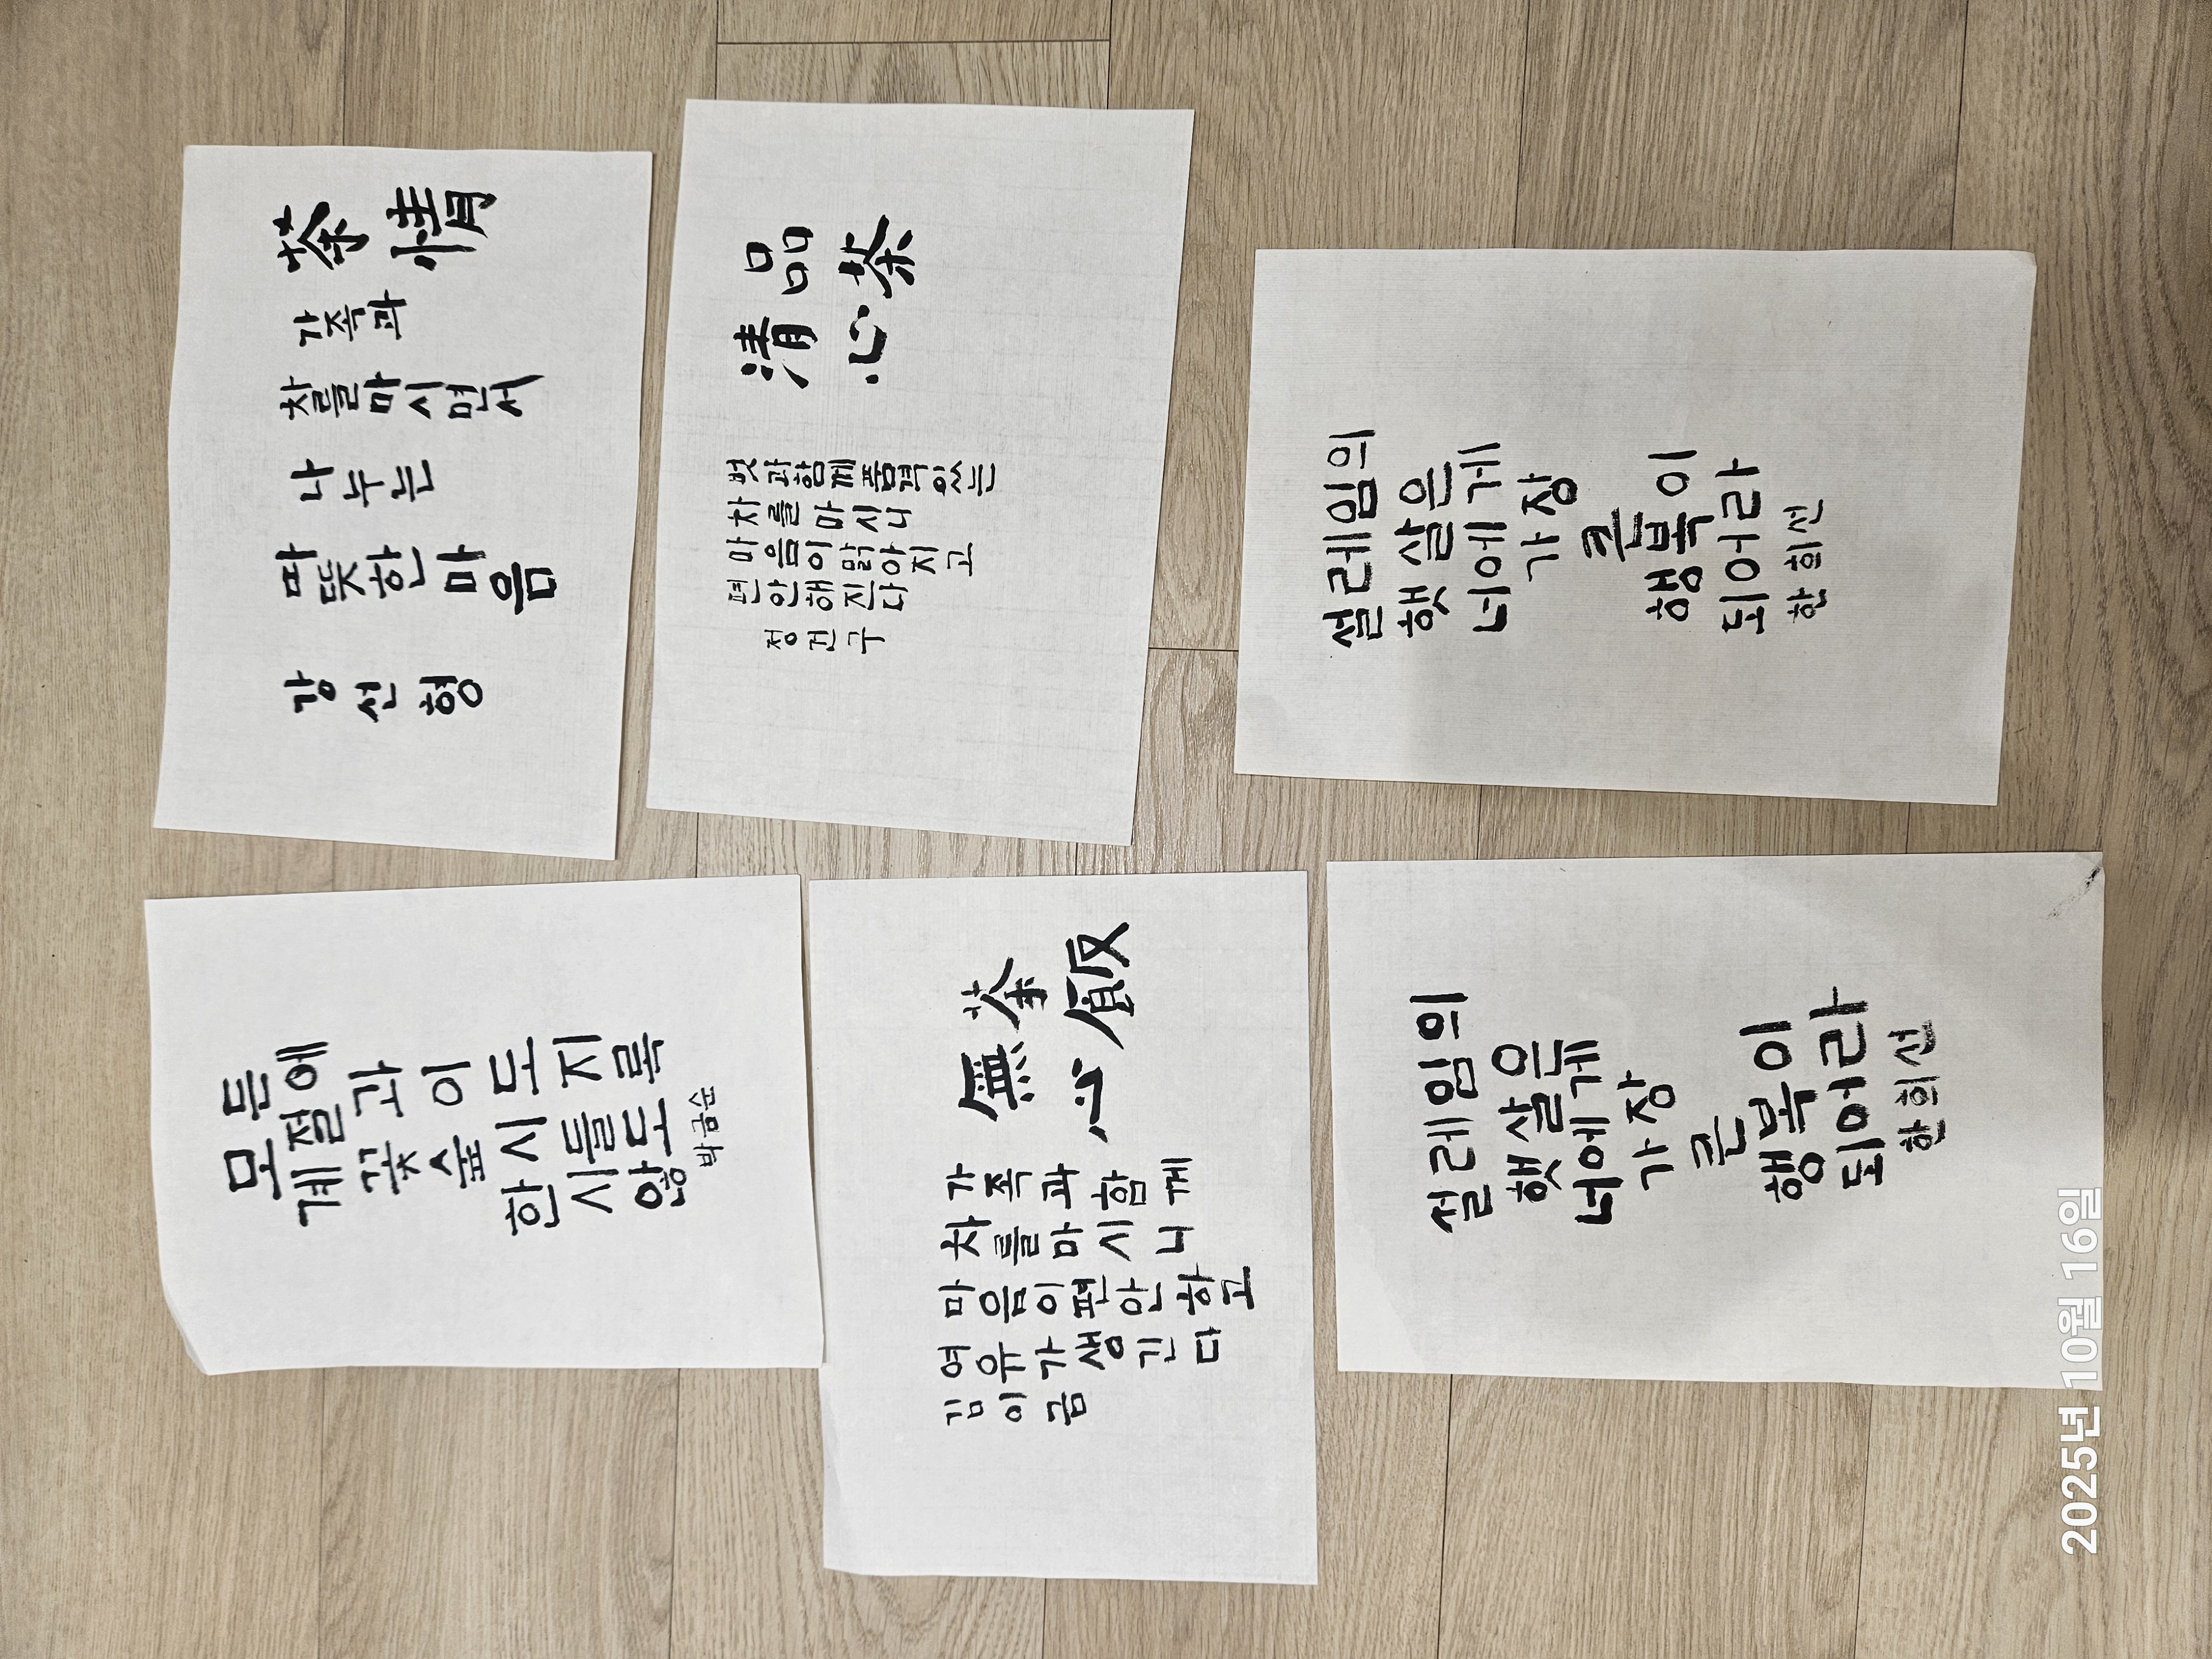 모든
계절에
꽃과
숲이
한시도
시들지
않도록
박금순
茶情
가족과
찰를마시면서
나누는
따뜻한마음
강선형
茶飯
無心
가족과함께
차를마시니
마음이편안하고
여유가생긴다
김이금
品茶
清心
벗과함께품격있는
차를마시니
마음이맑아지고
편안해진다
정건구
설레임의
햇살은
너에게
가장
큰
행복이
되어라
한희선
설레임의
햇살은
너에게
가장
큰
행복이
되어라
한희선
2025년 10월 16일